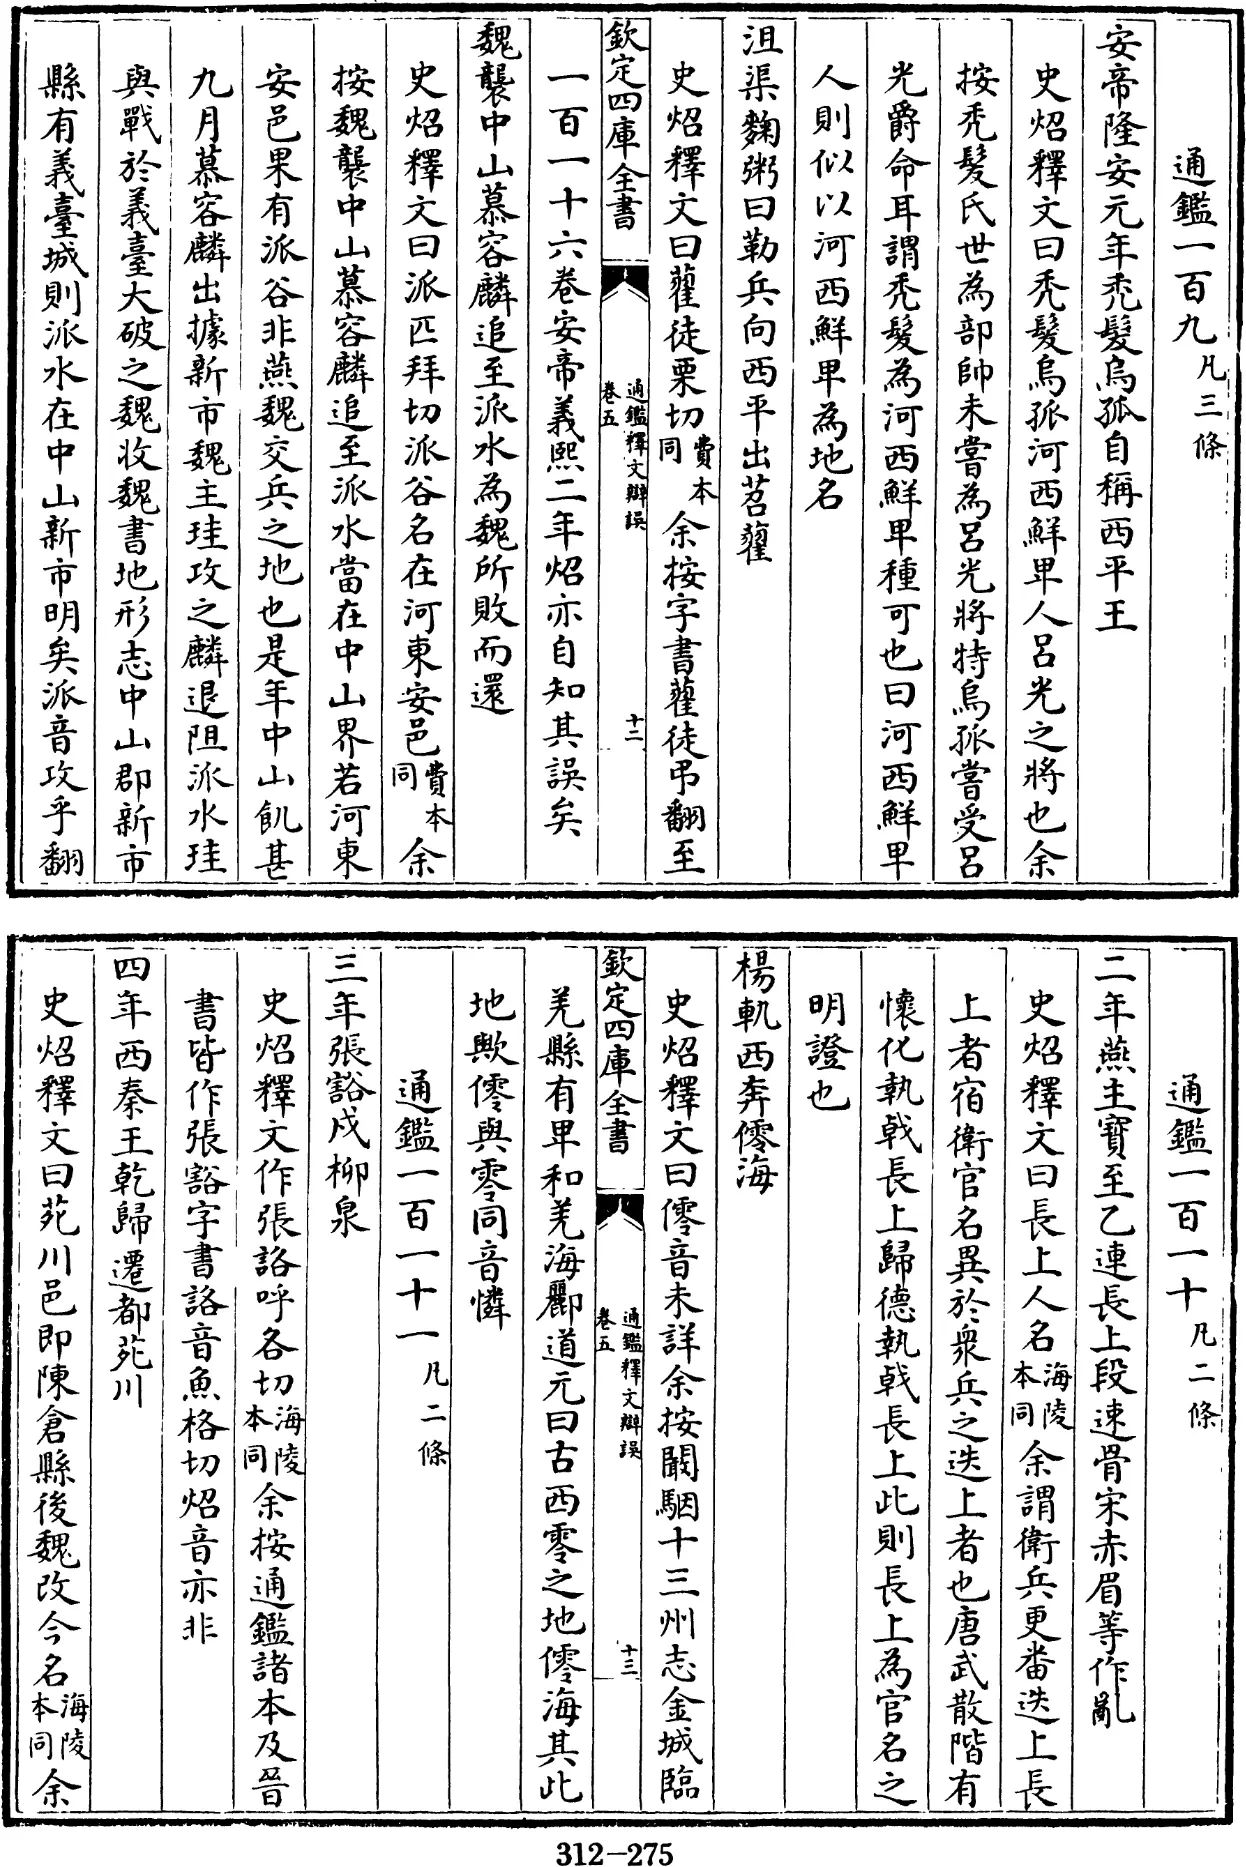 通鑑一百九凡三條
安帝隆安元年禿髮烏孤自稱西平王
史炤釋文曰禿髮烏孤河西鮮卑人呂光之將也余
按禿髮氏世為部帥未嘗為呂光將特烏孤嘗受呂
光爵命耳謂禿髮為河西鮮卑種可也曰河西鮮卑
人則似以河西鮮卑為地名
沮渠麴粥曰勒兵向西平出苕藋
史炤釋文曰藋徒栗切費本同余按字書藋徒弔翻至
欽定四庫全書
通鑑釋文辯誤
卷五
十二
一百一十六卷安帝義熙二年炤亦自知其誤矣
魏襲中山慕容麟追至派水為魏所敗而還
史炤釋文曰派匹拜切派谷名在河東安邑費本同余
按魏襲中山慕容麟追至派水當在中山界若河東
安邑果有派谷非燕魏交兵之地也是年中山飢甚
九月慕容麟出據新市魏主珪攻之麟退阻派水珪
與戰於義臺大破之魏收魏書地形志中山郡新市
縣有義臺城則派水在中山新市明矣派音攻乎翻
通鑑一百一十凡二條
二年燕主寶至乙連長上段速骨宋赤眉等作亂
史炤釋文曰長上人名海陵本同余謂衛兵更番迭上長
上者宿衛官名異於衆兵之迭上者也唐武散階有
懷化執戟長上歸德執戟長上此則長上為官名之
明證也
楊軌西奔僁海
史炤釋文曰僁音未詳余按闞駰十三州志金城臨
欽定四庫全書
通鑑釋文辯誤
卷五
十三
羌縣有卑和羌海酈道元曰古西零之地僁海其此
地歟僁與零同音憐
通鑑一百一十一凡二條
三年張豁戍柳泉
史炤釋文作張詻呼各切海陵本同余按通鑑諸本及晉
書皆作張豁字書詻音魚格切炤音亦非
四年西秦王乾歸遷都苑川
史炤釋文曰苑川邑即陳倉縣後魏改今名海陵本同余
312-275